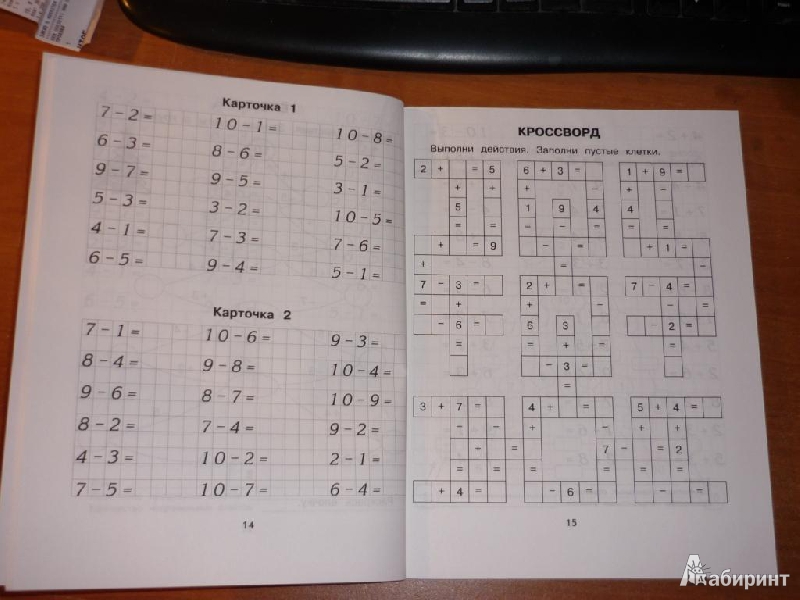 Карточка 1
7-2= 10-1= 10-8=
6-3= 8-6= 5-2=
9-7= 9-5= 3-1=
5-3= 3-2= 10-5=
4-1= 7-3= 7-6=
6-5= 9-4= 5-1=
Карточка 2
7-1= 10-6= 9-3=
8-4= 9-8= 10-4=
9-6= 8-7= 10-9=
8-2= 7-4= 9-2=
4-3= 10-2= 2-1=
7-5= 10-7= 6-4=
14
КРОССВОРД
Выполни действия. Заполни пустые клетки.
2 + = 5 6 + 3 = 1 + 9 =
+ + + - + -
5 1 9 4 4
= = = = = =
+ = 9 - = + 1 =
+ = -
7 - 3 = 2 + = 7 - 4 =
= + + - - =
- 6 = 6 3 - 2 =
= = + = =
- 3 =
=
3 + 7 = 4 + = 5 + 4 =
- - + - + +
+ = 7 - = 2
= = = = = =
+ 4 = - 6 =
15
Лабиринт